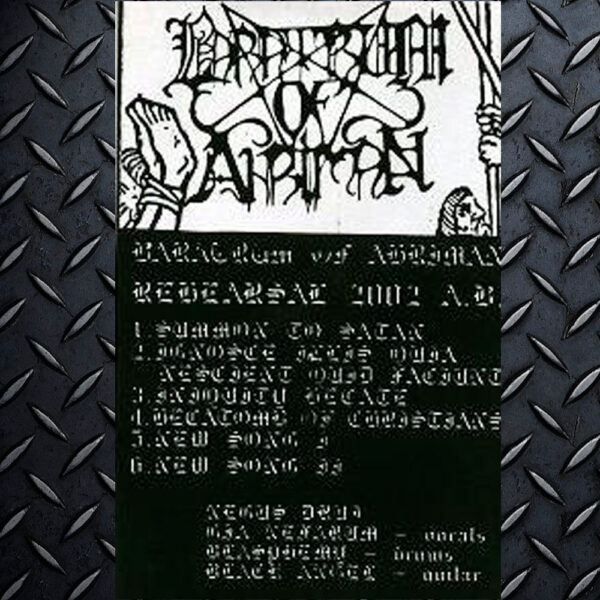 BARATRUM
OF
AHRIMAN
BARATRUM OF AHRIMAN
REHEARSAL 2002 A.B.
1. SUMMON TO SATAN
2. IGNOSCE ILLIS QUIA
NESCIENT QUID FACIUNT
3. INIQUITY HECATE
4. HECATOMB OF CHRISTIANS
5. NEW SONG I
6. NEW SONG II
NEGUS
NEFARUM - vocals
BLASPHEMY - drums
BLACK ANGEL - guitar